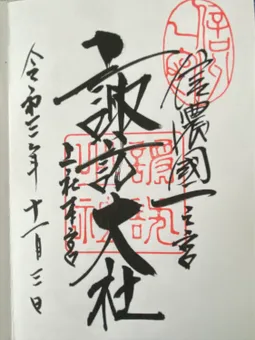 信濃國一之宮
諏訪大社
上社本宮
令和三年十一月三日